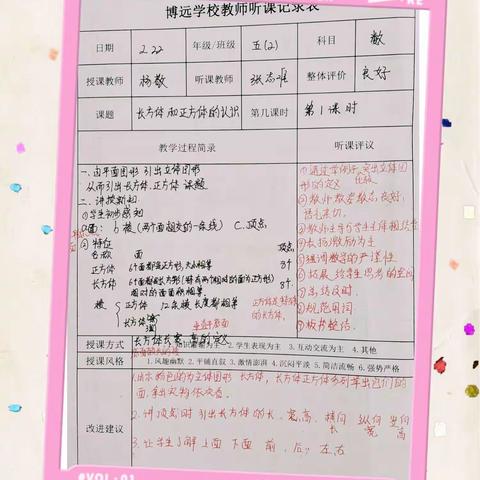 博远学校教师听课记录表
日期 2.22 年级/班级 五(2) 科目 数
授课教师 杨敬 听课教师 张志 整体评价 良好
课题 长方体和正方体的认识 第几课时 第1课时
教学过程简录 听课评议
一、由平面图形引出立体图形
从而引出长方体.正方体 课题
二、讲授新知
①学生初步感知
面: b棱(两个面相交的一条线) C.顶点
② 特征
名称 面 顶点
正方体 6个面都是正方形,大小相等 8个
长方体 6个面都是长方形(特殊两个相对的面为正方形) 8个
相对的面面积相等.
棱 正方体 12条棱长度都相等 正方体是特殊的长方体.
长方体
长方体长 宽 高的定义
①通过举例子,突出立体图形的定义
②教师教态
③教师主导与学生主体相结合
④表扬激励为主
⑤强调数学的严谨性
⑥拓展 给学生思考的空间
⑦总结及时.
⑧规范用词
⑨板书整洁.
授课方式 1.知识灌输为主 2.学生表现为主 3.互动交流为主 4.其他
授课风格 1.风趣幽默 2.平铺直叙 3.激情澎湃 4.沉闷平淡 5.简洁流畅 6.强势严格
改进建议
1.出示颜色的为立体图形 长方体, 长方体正方体多列举出它们的
面,拿出实物
2. 讲顶点时 引出长方体的长、宽,高. 横向 纵向 竖向
长 宽 高
3. 让学生了解上面 下面 前, 后, 左,右